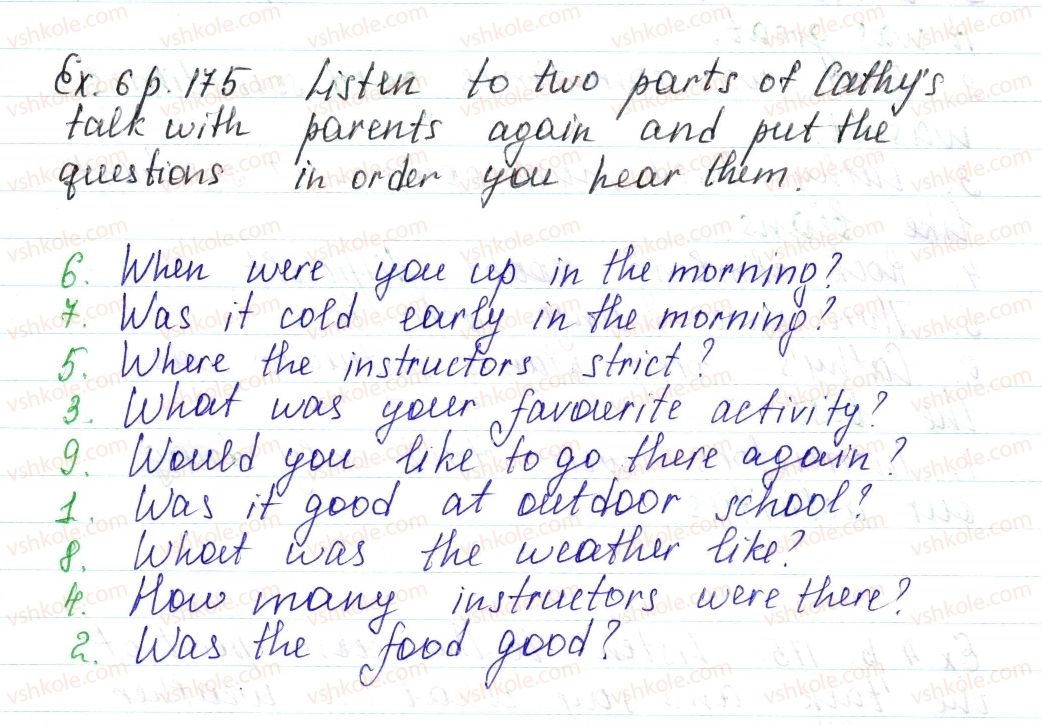 Ex. 6 p. 175 Listen to two parts of Cathy's
talk with parents again and put the
questions in order you hear them.
6. When were you up in the morning?
7. Was it cold early in the morning?
5. Where the instructors strict?
3. What was your favourite activity?
9. Would you like to go there again?
1. Was it good at outdoor school?
8. What was the weather like?
4. How many instructors were there?
2. Was the food good?